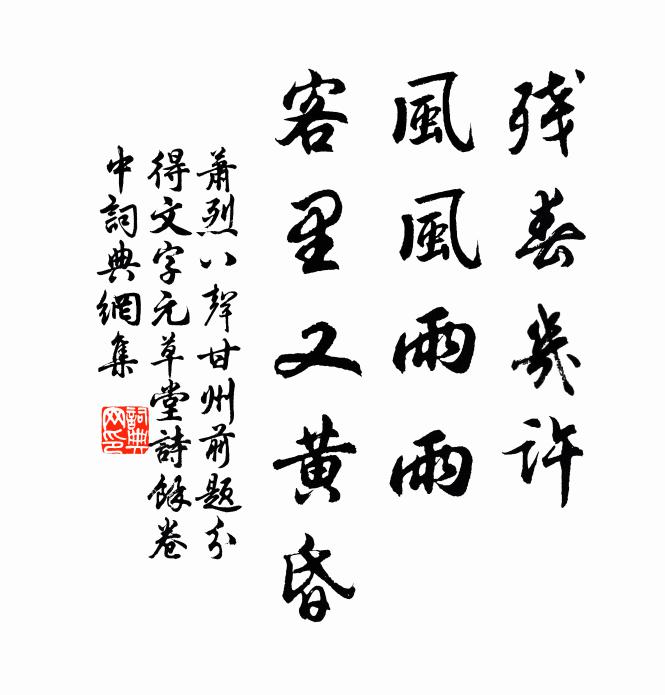 残春幾許
風風雨雨
客里又黄昏
蕭烈八聲甘州前題分
得文字元草堂詩餘卷
中詞典網集
詞典
网印